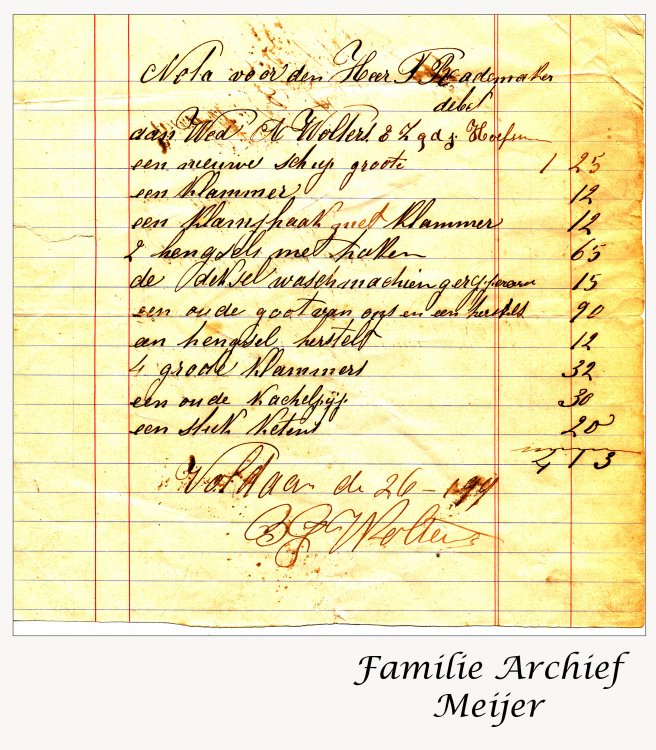 Nota voor den Heer F Rademaker
debet
aan Wed A Wolters & Z g d j. Hoefsm
een nieuwe schup groote 1 25
een Klammer 12
een Klamphaak met Klammer 12
2 hengsels met haken 65
de deksel waschmachien gerepareerd 15
een oude goot van ons en een herstelt 90
an hengsel herstelt 12
4 groote Klammers 32
een oude Kachelpijp 30
een stuk Keten 20
4 13
Voldaan de 26 - 1
Wolters
Familie Archief
Meijer